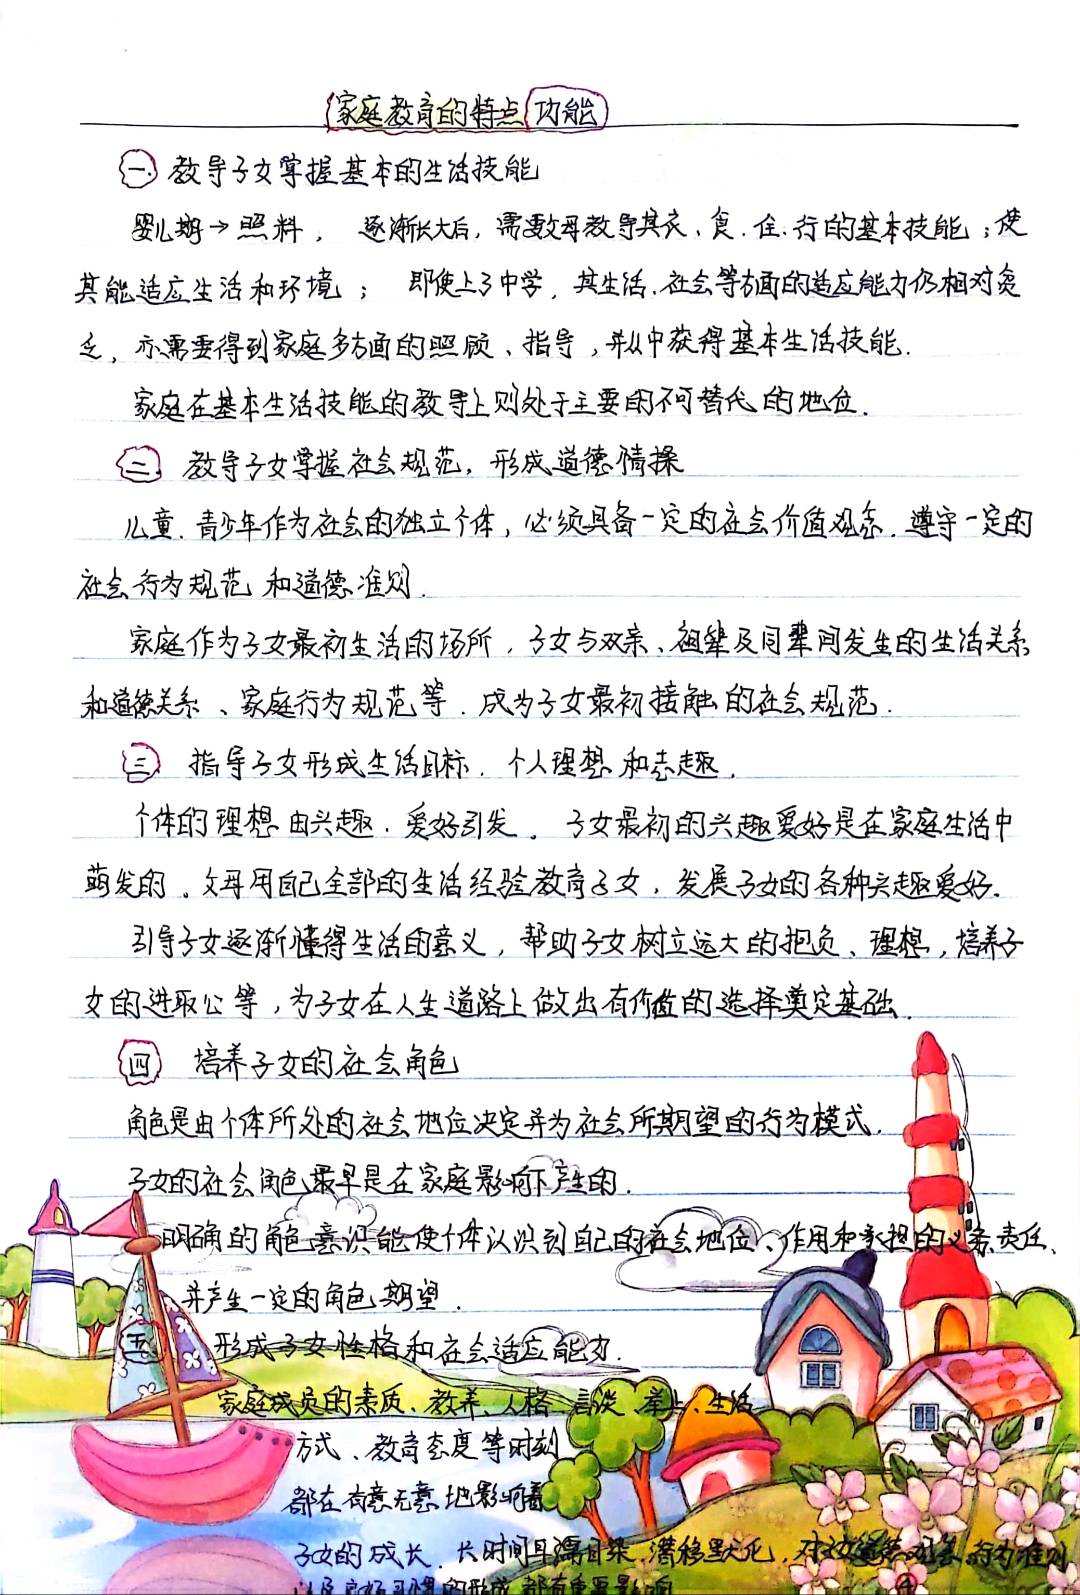 家庭教育的特点 功能
一、教导子女掌握基本的生活技能
婴儿期→照料， 逐渐长大后，需要父母教导其衣、食、住、行的基本技能；使
其能适应生活和环境； 即使上了中学，其生活、社会等方面的适应能力仍相对贫
乏，亦需要得到家庭多方面的照顾、指导，并从中获得基本生活技能．
家庭在基本生活技能的教导上则处于主要的不可替代的地位．
二、教导子女掌握社会规范，形成道德情操
儿童、青少年作为社会的独立个体，必须具备一定的社会价值观念、遵守一定的
社会行为规范和道德准则．
家庭作为子女最初生活的场所，子女与双亲、祖辈及同辈间发生的生活关系
和道德关系、家庭行为规范等．成为子女最初接触的社会规范．
三、指导子女形成生活目标、个人理想和志趣．
个体的理想由兴趣、爱好引发。子女最初的兴趣爱好是在家庭生活中
萌发的。父母用自己全部的生活经验教育子女，发展子女的各种兴趣爱好．
引导子女逐渐懂得生活的意义，帮助子女树立远大的抱负、理想，培养子
女的进取心等，为子女在人生道路上做出有价值的选择奠定基础．
四 培养子女的社会角色
角色是由个体所处的社会地位决定并为社会所期望的行为模式．
子女的社会角色最早是在家庭影响下产生的．
明确的角色意识能使个体认识到自己的社会地位、作用和承担的义务责任、
并产生一定的角色期望．
五、形成子女性格和社会适应能力．
家庭成员的素质、教养、人格、言谈、举止、生活
方式、教育态度等时刻
都在有意无意地影响着
子女的成长．长时间耳濡目染、潜移默化，对子女道德观念、行为准则
以及良好习惯的形成都有重要影响